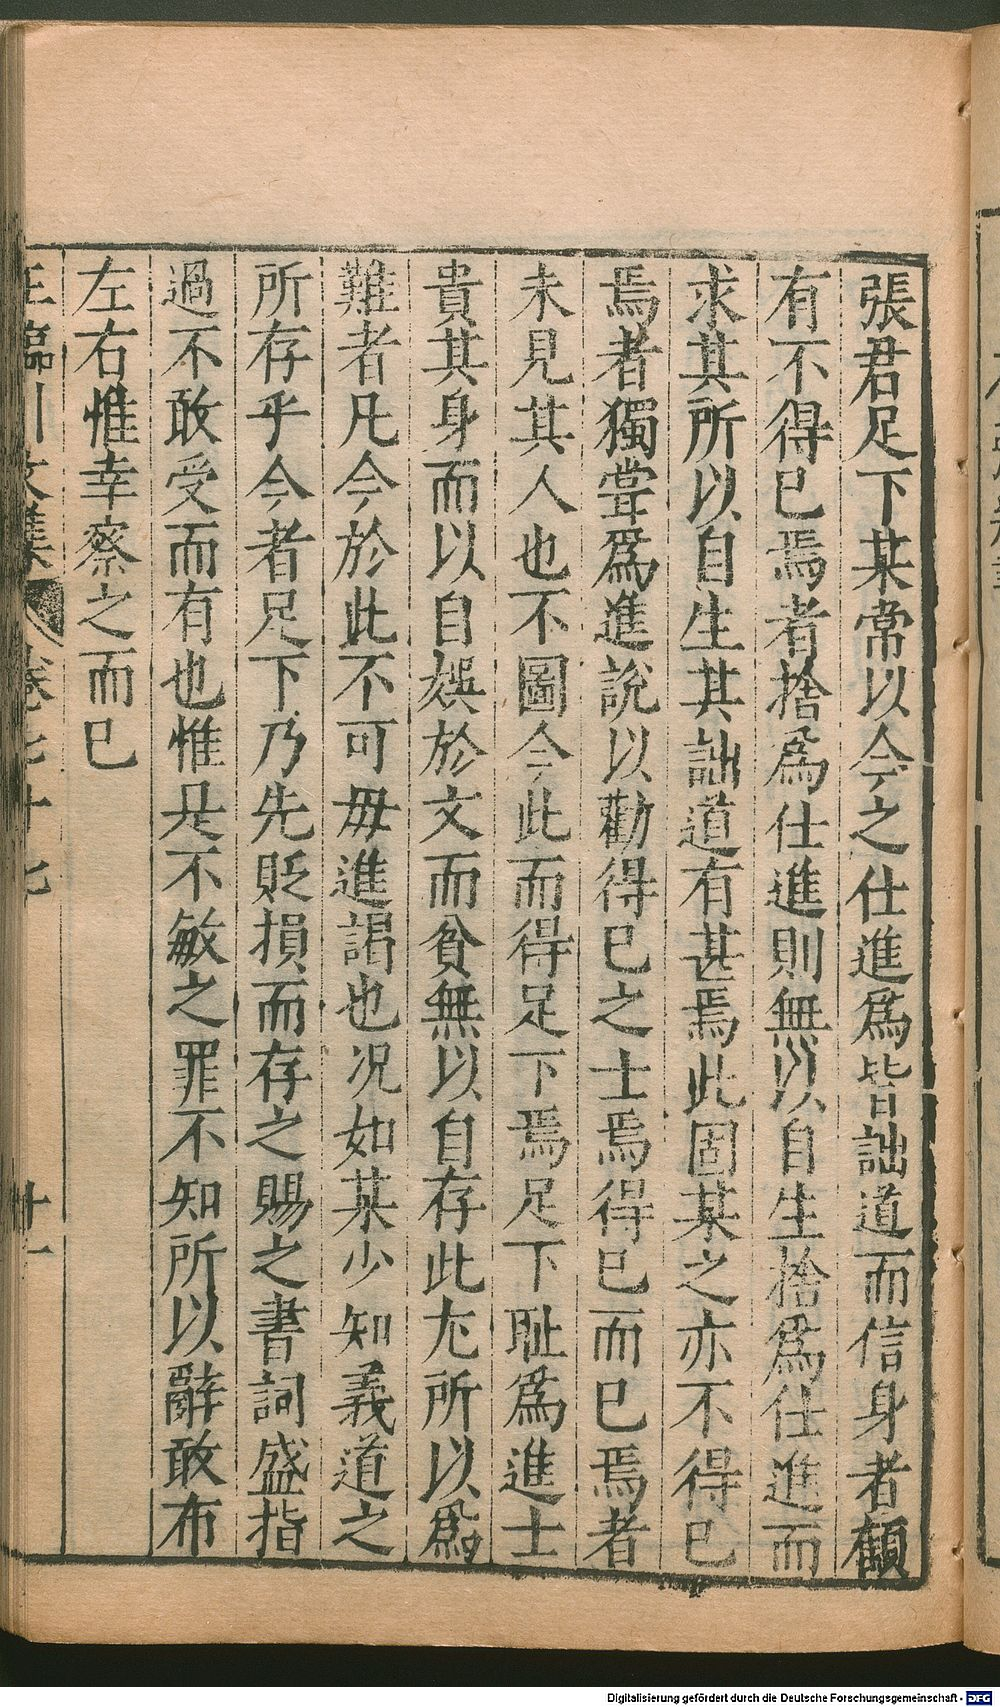 張君足下某常以今之仕進爲皆詘道而信身者顧
有不得已焉者捨爲仕進則無以自生捨爲仕進而
求其所以自生其詘道有甚焉此固某之亦不得已
焉者獨嘗爲進說以勸得已之士焉得已而已焉者
未見其人也不圖今此而得足下焉足下恥爲進士
貴其身而以自娛於文而貧無以自存此尤所以爲
難者凡今於此不可毋進謁也况如某少知義道之
所存乎今者足下乃先貶損而存之賜之書詞盛指
過不敢受而有也惟是不敏之罪不知所以辭敢布
左右惟幸察之而已
王臨川文集 卷七十七 廿一
Digitalisierung gefördert durch die Deutsche Forschungsgemeinschaft - DFG